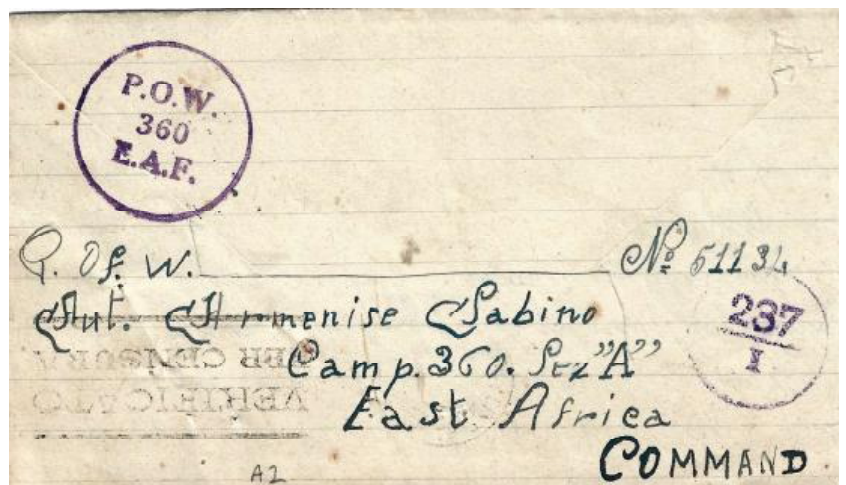 P.O.W.
360
E.A.F.
P. Of. W. Nº 51134
Aut. Armenise Sabino
237
I
Camp. 360. Sez "A"
East Africa
COMMAND
PER CENSURA
VERIFICATO
A2